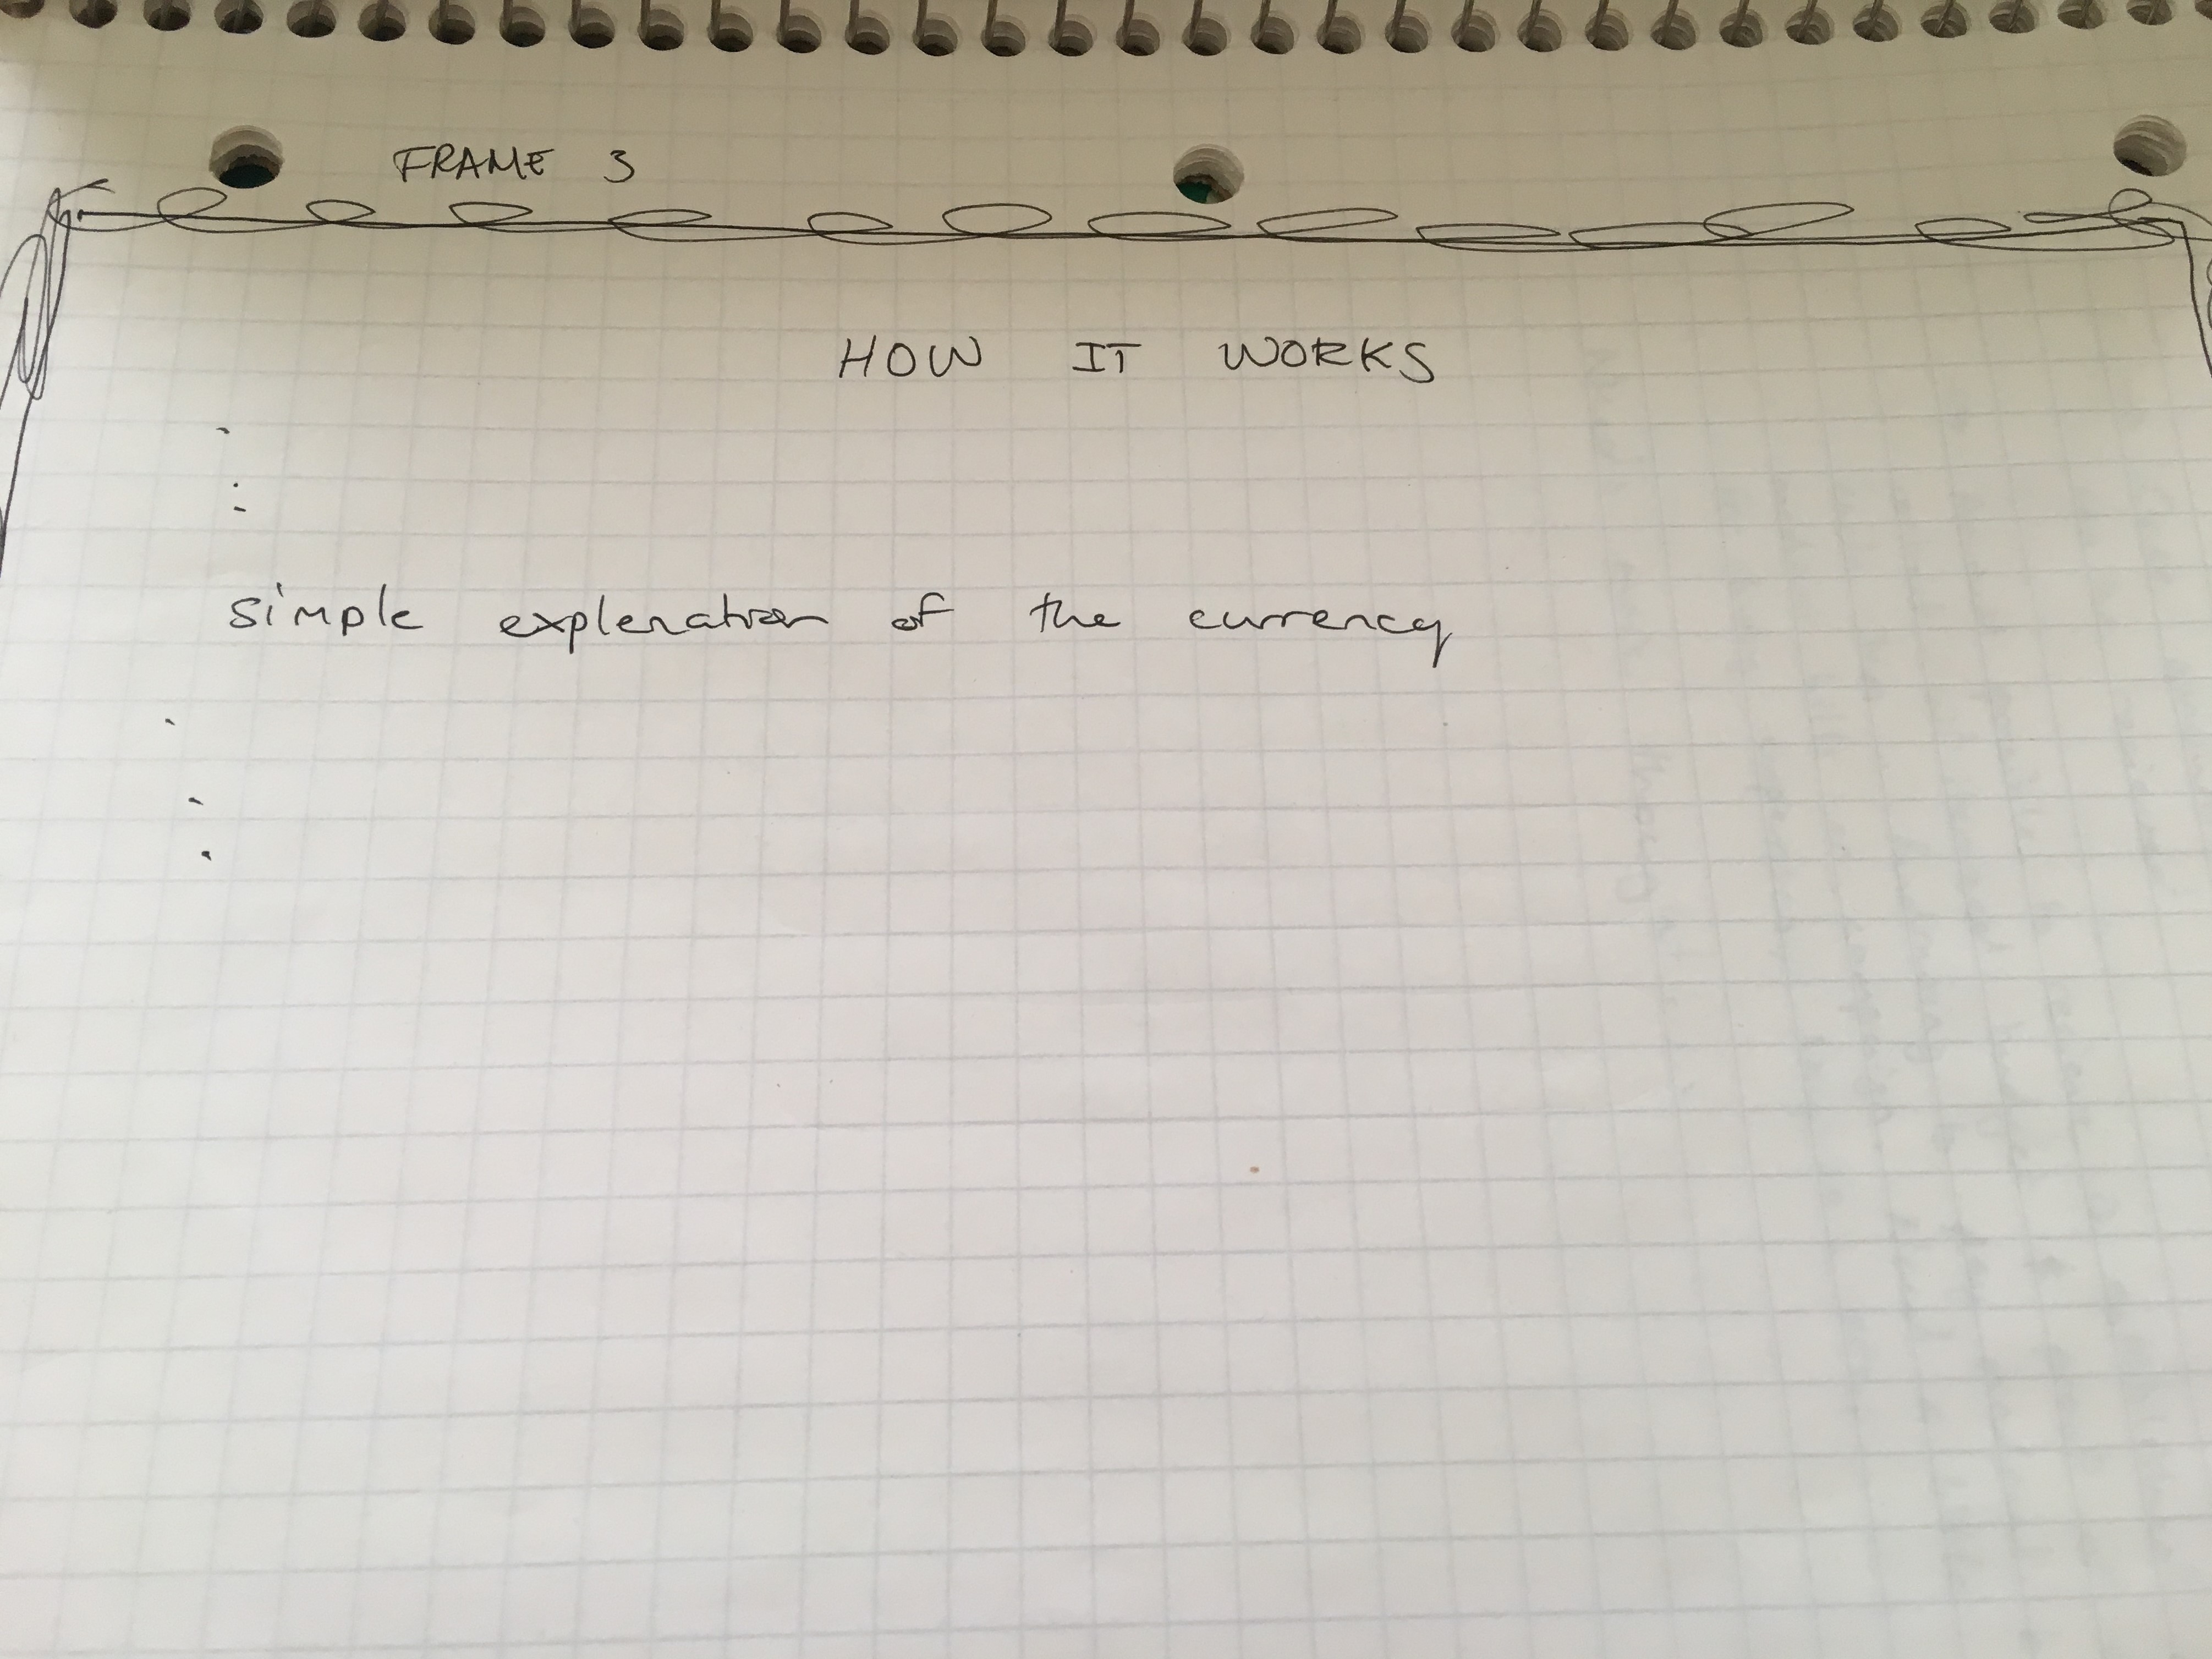 FRAME 3
HOW IT WORKS
simple explenation of the currency